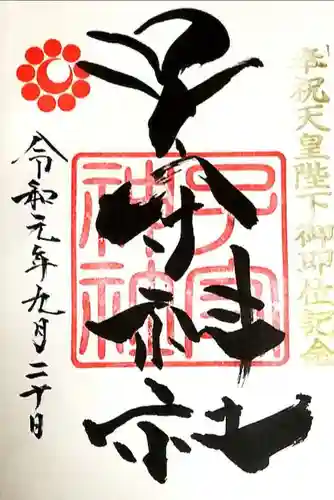 奉祝天皇陛下御即位記念
子安神社
子安神社
令和元年九月二十日